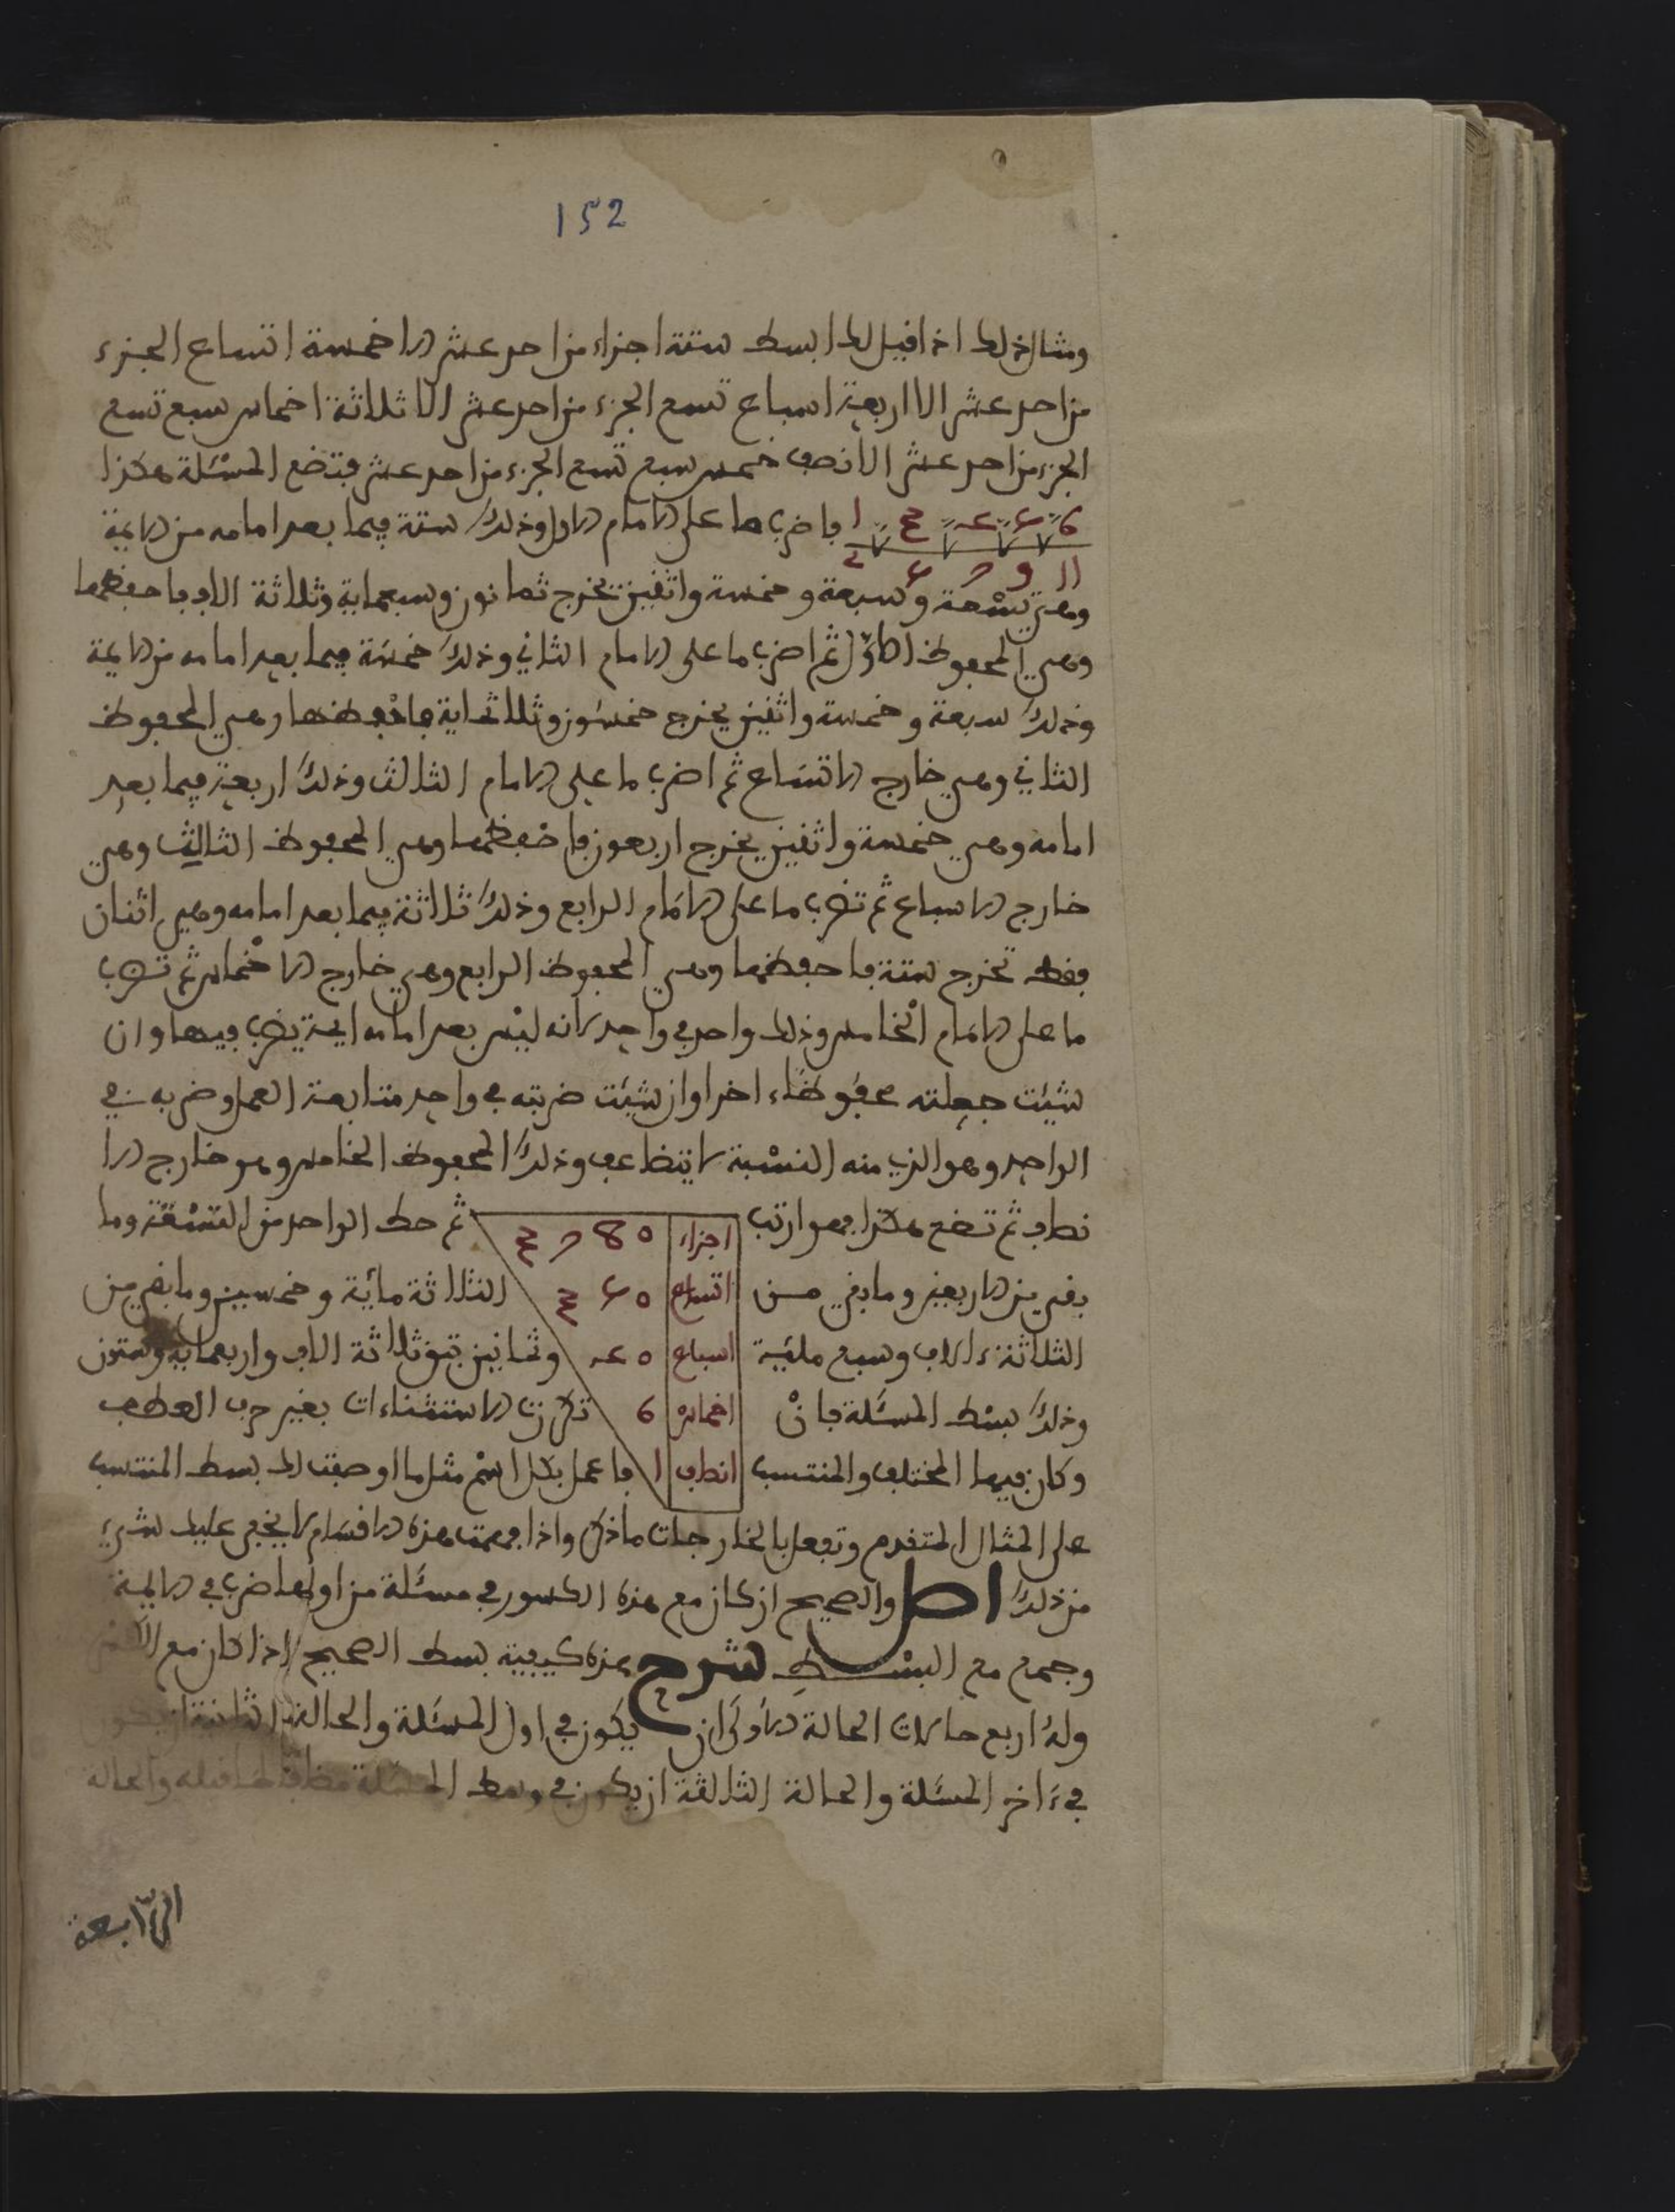 152
ومثال ذلك اذا قيل لك ابسط ستة اجزاء من احد عشر الا خمسة اتساع الجزء
من احد عشر الا اربعة اسباع تسع الجزء من احد عشر الا ثلاثة اخماس سبع تسع
الجزء من احد عشر الا نصف خمس سبع تسع الجزء من احد عشر فتضع المسئلة هكذا
فاضرب ما على الامام الاول وذلك ستة فيما بعد امامه من الايمة
وهي تسعة وسبعة وخمسة واثنين يخرج ثمانون وسبعماية وثلاثة الاف فاحفظها
وهي المحفوظ الاول ثم اضرب ما على الامام الثاني وذلك خمسة فيما بعد امامه من الايمة
وذلك سبعة وخمسة واثنين يخرج خمسون وثلاثماية فاحفظها وهي المحفوظ
الثاني وهي خارج الاتساع ثم اضرب ما على الامام الثالث وذلك اربعة فيما بعد
امامه وهي خمسة واثنين يخرج اربعون فاحفظها وهي المحفوظ الثالث وهي
خارج الاسباع ثم تضرب ما على الامام الرابع وذلك ثلاثة فيما بعد امامه وهي اثنان
فقط تخرج ستة فاحفظها وهي المحفوظ الرابع وهي خارج الاخماس ثم تضرب
ما على الامام الخامس وذلك واحد في واحد لانه ليس بعد امامه ايمة يضرب فيها وان
شئت جعلته محفوظا اخرا وان شئت ضربته في واحد متابعة العمل وضربه في
الواحد وهو الذي منه النسبة لا يتضاعف وذلك المحفوظ الخامس وهو خارج الا
نصاف ثم تضع هكذا فهو ارتب
اجزاء 3780
ثم حط الواحد من الستة وما
بقي من الاربعين وما بقي من
اتساع 350
الثلاثة مائة وخمسين وما بقي من
الثلاثة ءالاف وسبع مائية
اسباع 40
وثمانين تبق ثلاثة الاف واربعماية وستون
وذلك بسط المسئلة فان
اخماس 6
تكررت الاستثناءات بغير حرف العطف
وكان فيها المختلف والمنتسب
انصاف 1
فاعمل بكل اسم مثل ما اوصفت لك بسط المنتسب
على المثال المتقدم وتفعل بالخارجات ما ذكر واذا فهمت هذه الاقسام لا يخفى عليك شيء
من ذلك اصل والصحيح ان كان مع هذه الكسور في مسئلة من اولها ضرب في الايمة
وجمع مع البسط شرح هذه كيفية بسط الصحيح اذا كان مع
وله اربع حالات الحالة الاولى ان يكون في اول المسئلة والحالة الثانية ان يكون
في ءاخر المسئلة والحالة الثالثة ان يكون في وسط المسئلة مضافا لما قبله والحالة
الرابعة